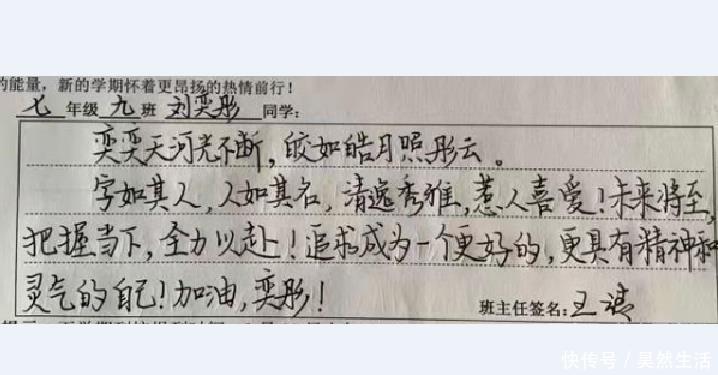 的能量，新的学期怀着更昂扬的热情前行！
七 年级 九 班 刘奕彤 同学：
奕奕天河光不断，皎如皓月照彤云。
字如其人，人如其名，清逸秀雅，惹人喜爱！未来将至，
把握当下，全力以赴！追求成为一个更好的，更具有精神和
灵气的自己！加油，奕彤！
班主任签名：王
快传号／昊然生活